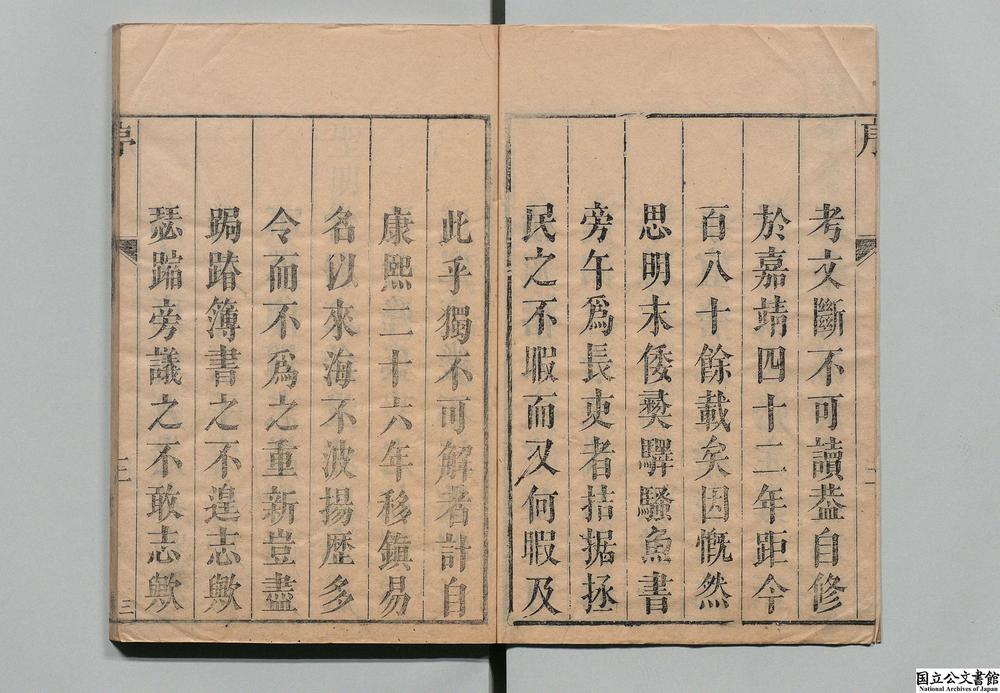 序
考文斷不可讀葢自修
於嘉靖四十二年距今
百八十餘載矣因慨然
思明末倭奰驛騷魚書
旁午爲長吏者拮据拯
民之不暇而又何暇及
此乎獨不可解者計自
康熙二十六年移鎮易
名以來海不波揚歷多
令而不爲之重新豈盡
跼蹐簿書之不遑志歟
瑟蹜旁議之不敢志歟
序
三
国立公文書館
National Archives of Japan